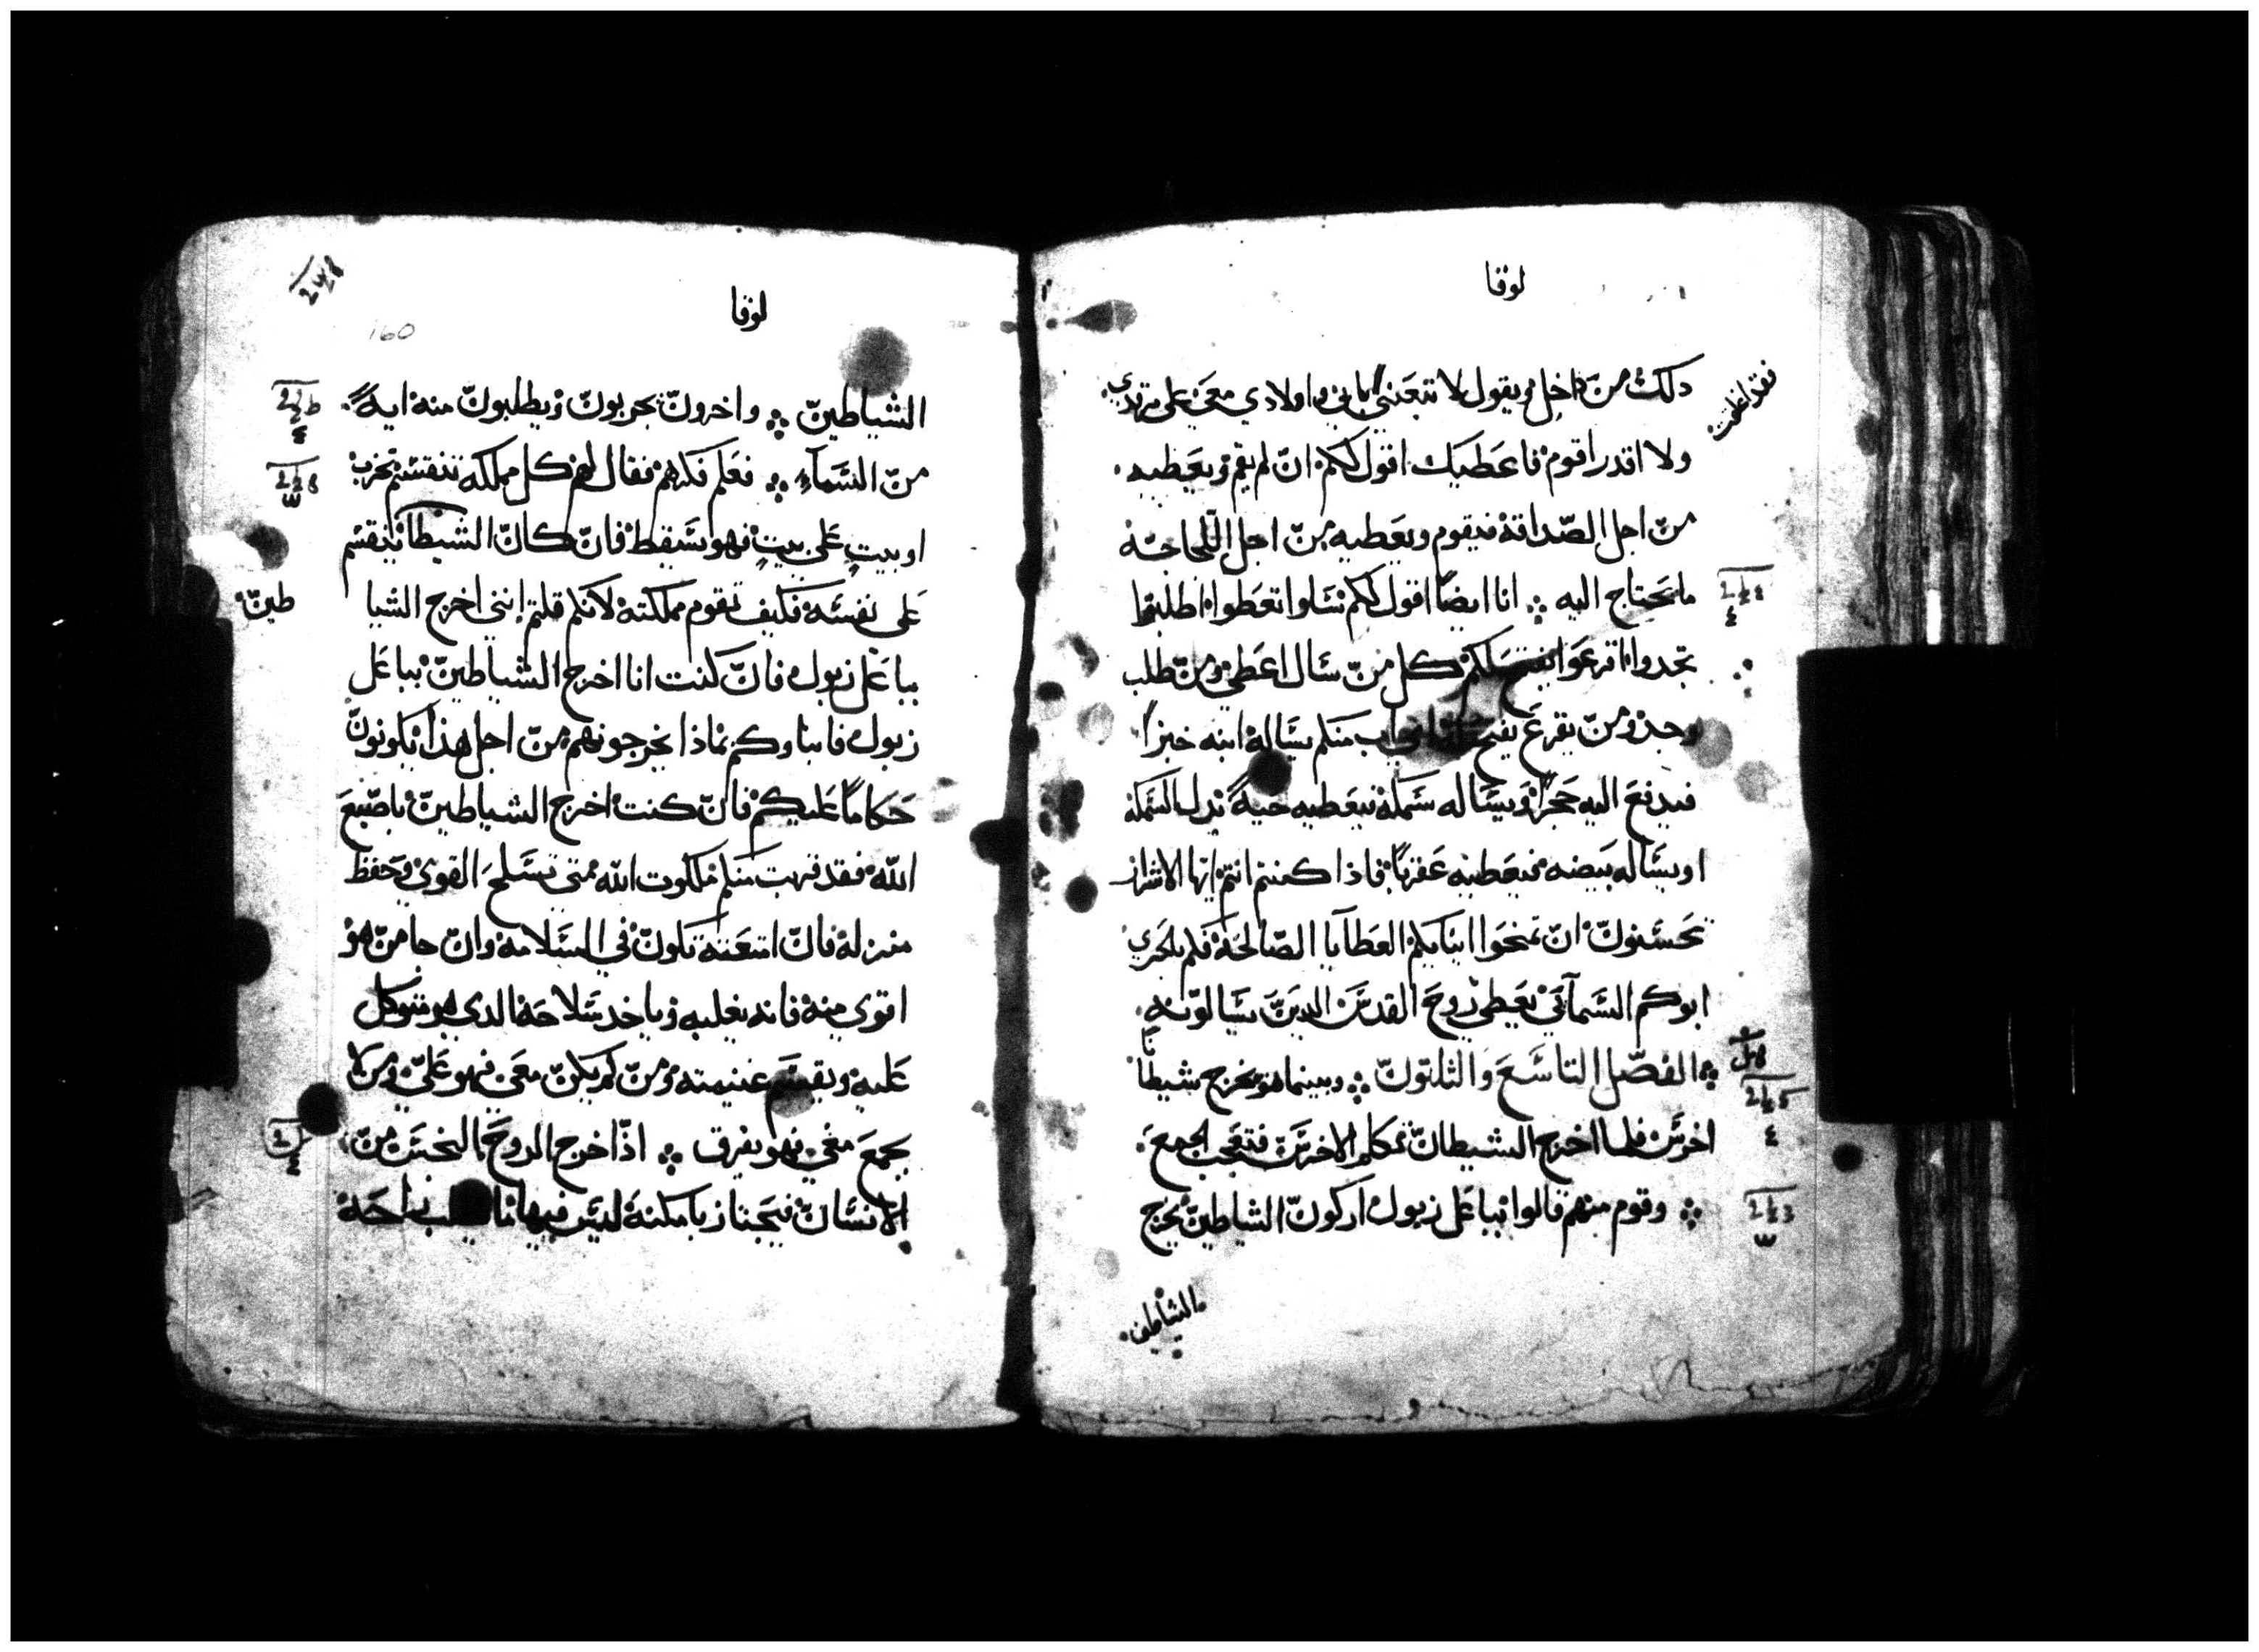 لوقا
دلك من داخل ويقول لا تتعبني بابي واولادي معي على مرتدي
ولا اقدر اقوم فاعطيك اقول لكم ان لم يقم ويعطيه
من اجل الصداقة فيقوم ويعطيه من اجل اللجاجة
ما يحتاج اليه ۞ انا ايضًا اقول لكم سلوا تعطوا اطلبوا
تجدوا اقرعوا يفتح لكم كل من سال اعطي ومن طلب
وجد ومن يقرع يفتح اب منكم يساله ابنه خبزا
فيدفع اليه حجرًا ويساله سمكة فيعطيه حية بدل السمكة
او يساله بيضه فيعطيه عقربًا فاذا كنتم انتم ايها الاشرار
تحسنون ان تمنحوا ابنايكم العطايا الصالحة فكم بالحري
ابوكم السمآئي يعطي روح القدس الدين يسالونه
الفصل التاسع والثلثون ۞ وبينما هو يخرج شيطانًا
اخرس فلما اخرج الشيطان تكلم الاخرس فتعجب الجمع
۞ وقوم منهم قالوا بباعل زبول اركون الشاطين يخرج
الشياطين
لوقا
160
الشياطين ۞ واخرون يجربون ويطلبون منه ايةً
من السمآء ۞ فعلم فكرهم فقال لهم كل مملكه تنقسم تخرب
او بيت على بيت فهو يسقط فان كان الشيطان ينقسم
على نفسه فكيف تقوم مملكته لانكم قلتم انني اخرج الشيا
طين
بباعل زبول فان كنت انا اخرج الشياطين بباعل
زبول فابناوكم بماذا يخرجونهم من اجل هذا يكونون
حكامًا عليكم فان كنت اخرج الشياطين باصبع
الله فقد قربت منكم ملكوت الله متى تسلح القوي وحفظ
منزله فان امتعته تكون في السلامة وان جا من هو
اقوى منه فانه يغلبه وياخد سلاحه الدي هو متوكل
عليه ويقسم غنيمته ومن لم يكن معي فهو علي ومن لا
يجمع معي فهو يفرق ۞ اذا خرج الروح النجس من
الانسان فيجتاز بامكنة ليس فيها ما يطلب راحة